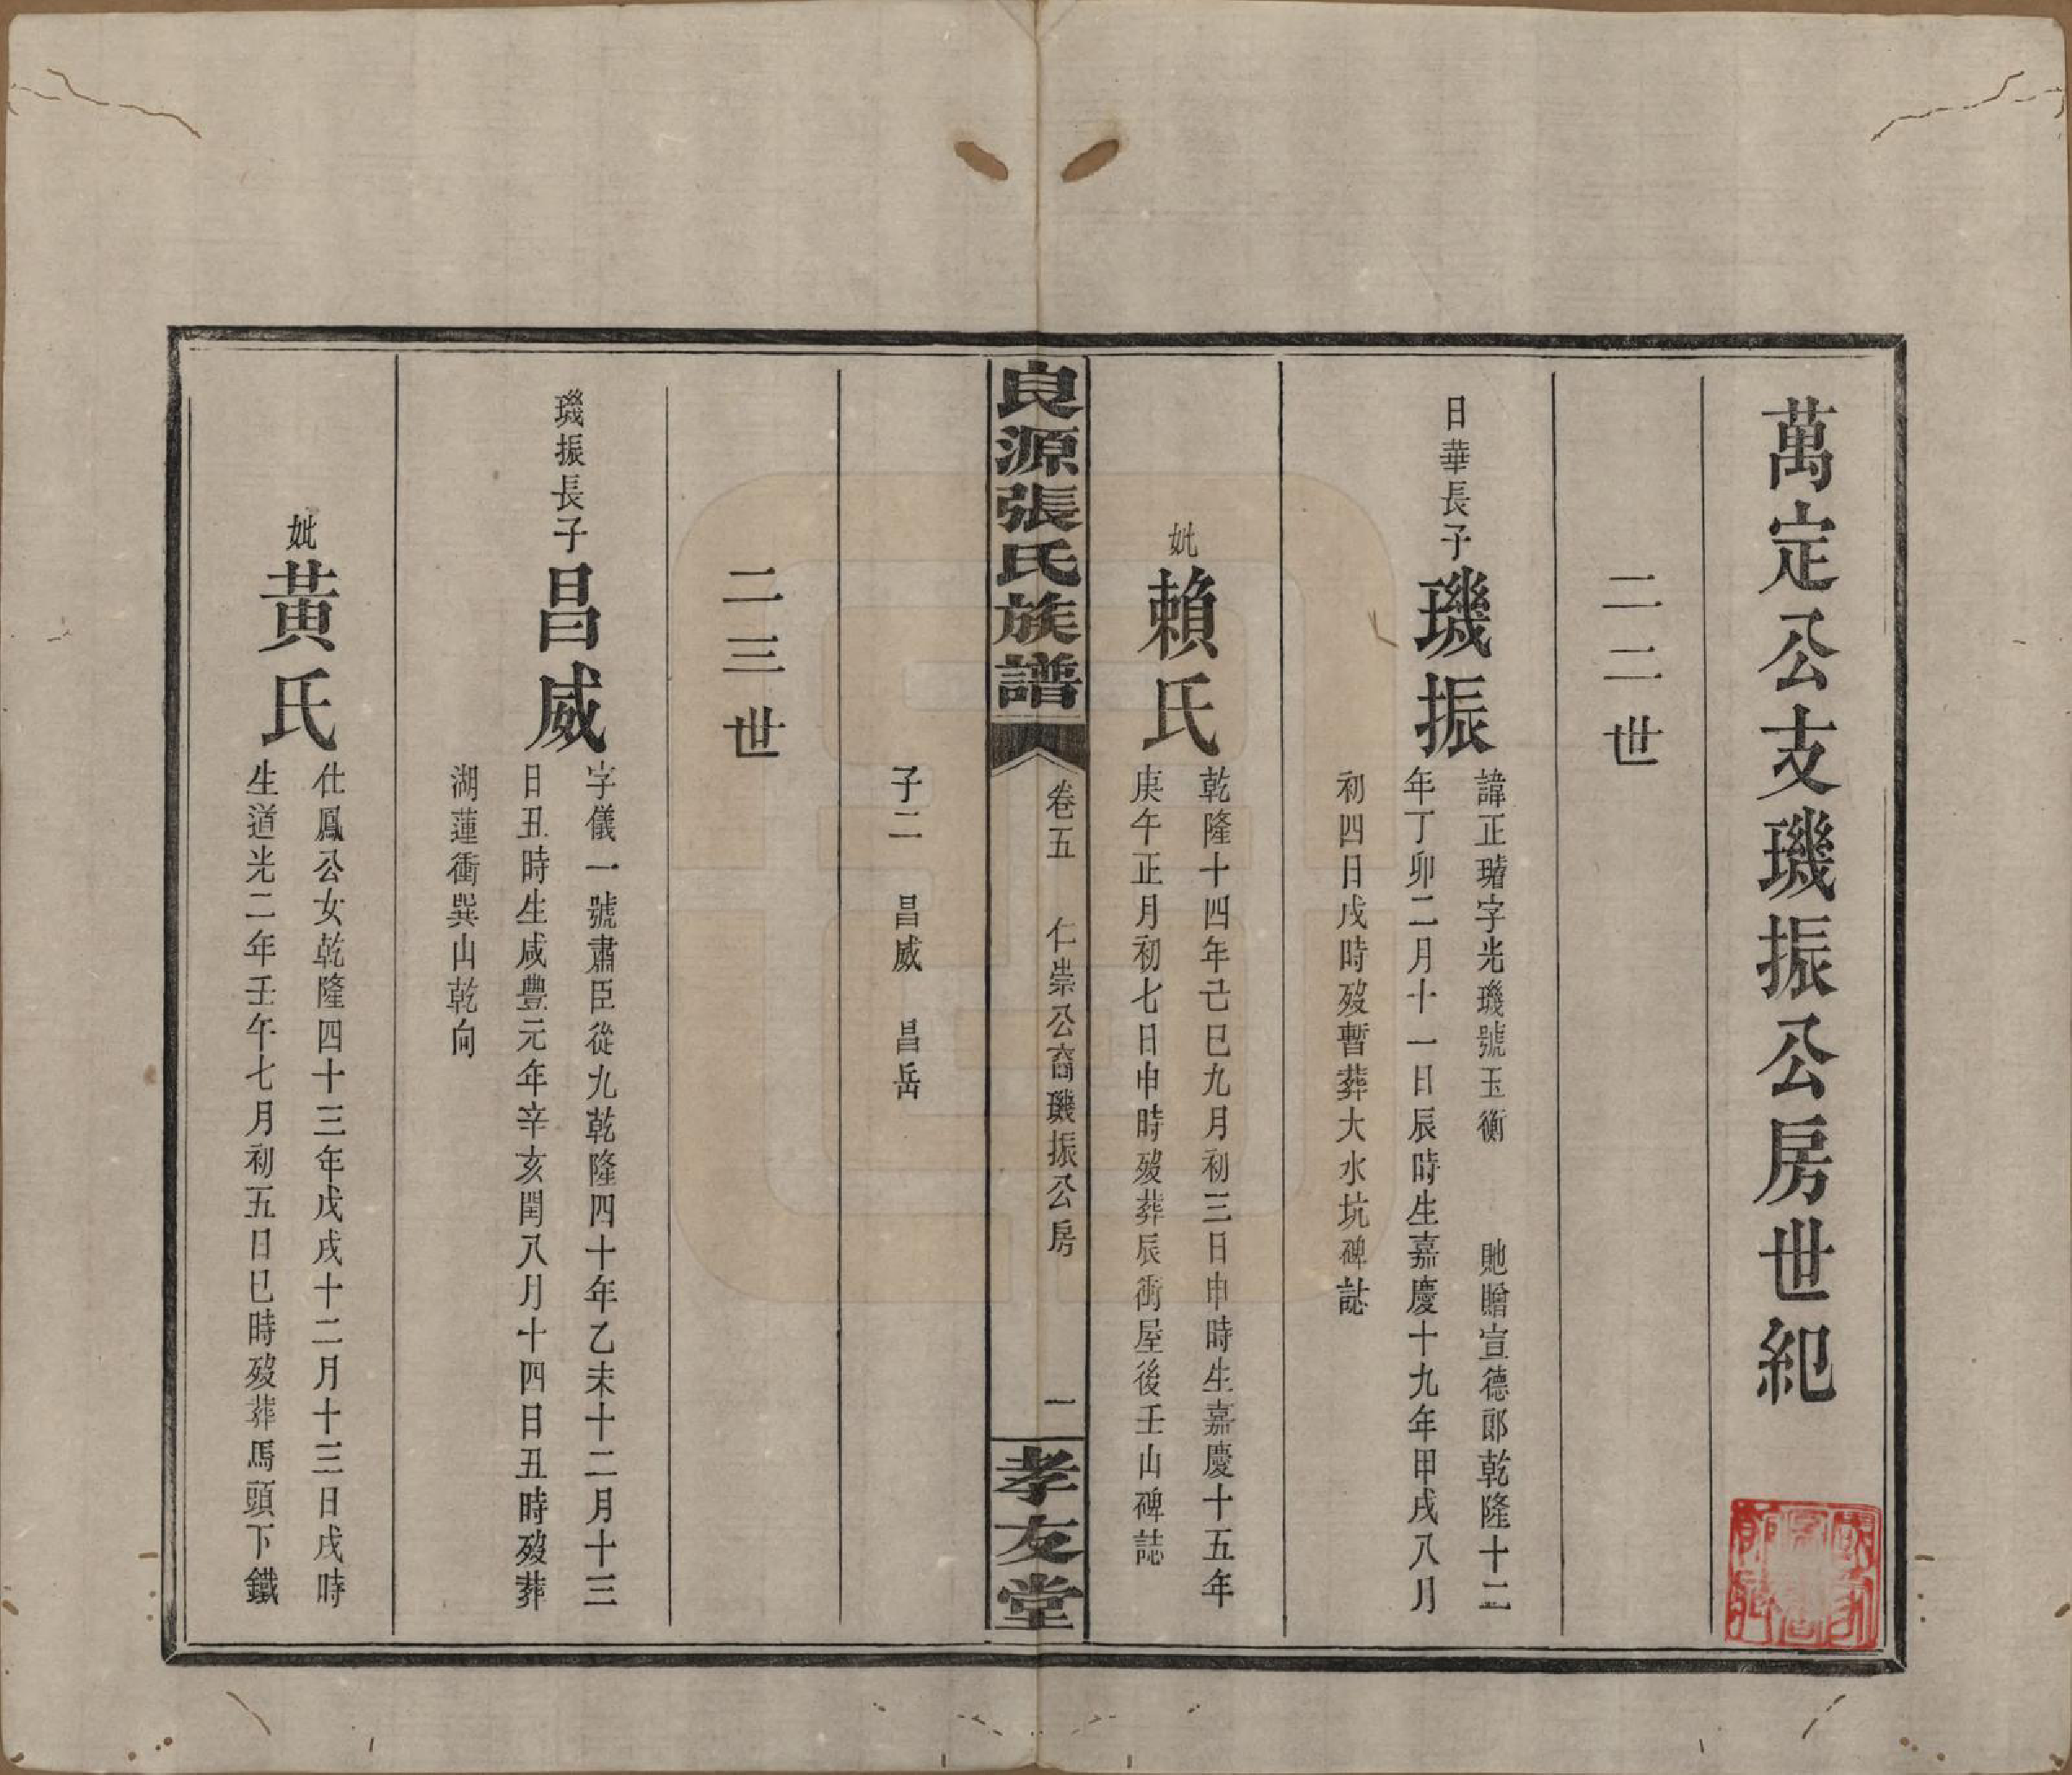 萬定公支璣振公房世紀
二二世
日華長子璣振
諱正瑃字光璣號玉衡　貤贈宣德郎乾隆十二
年丁卯二月十一日辰時生嘉慶十九年甲戌八月
初四日戌時歿暫葬大水坑碑誌
妣賴氏
乾隆十四年己巳九月初三日申時生嘉慶十五年
庚午正月初七日申時歿葬辰衝屋後壬山碑誌
良源張氏族譜
卷五　仁崇公裔璣振公房　一
孝友堂
子二　昌威　昌岳
二三世
璣振長子昌威
字儀一號肅臣從九乾隆四十年乙未十二月十三
日丑時生咸豐元年辛亥閏八月十四日丑時歿葬
湖蓮衝巽山乾向
妣黃氏
仕鳳公女乾隆四十三年戊戌十二月十三日戌時
生道光二年壬午七月初五日巳時歿葬馬頭下鐵